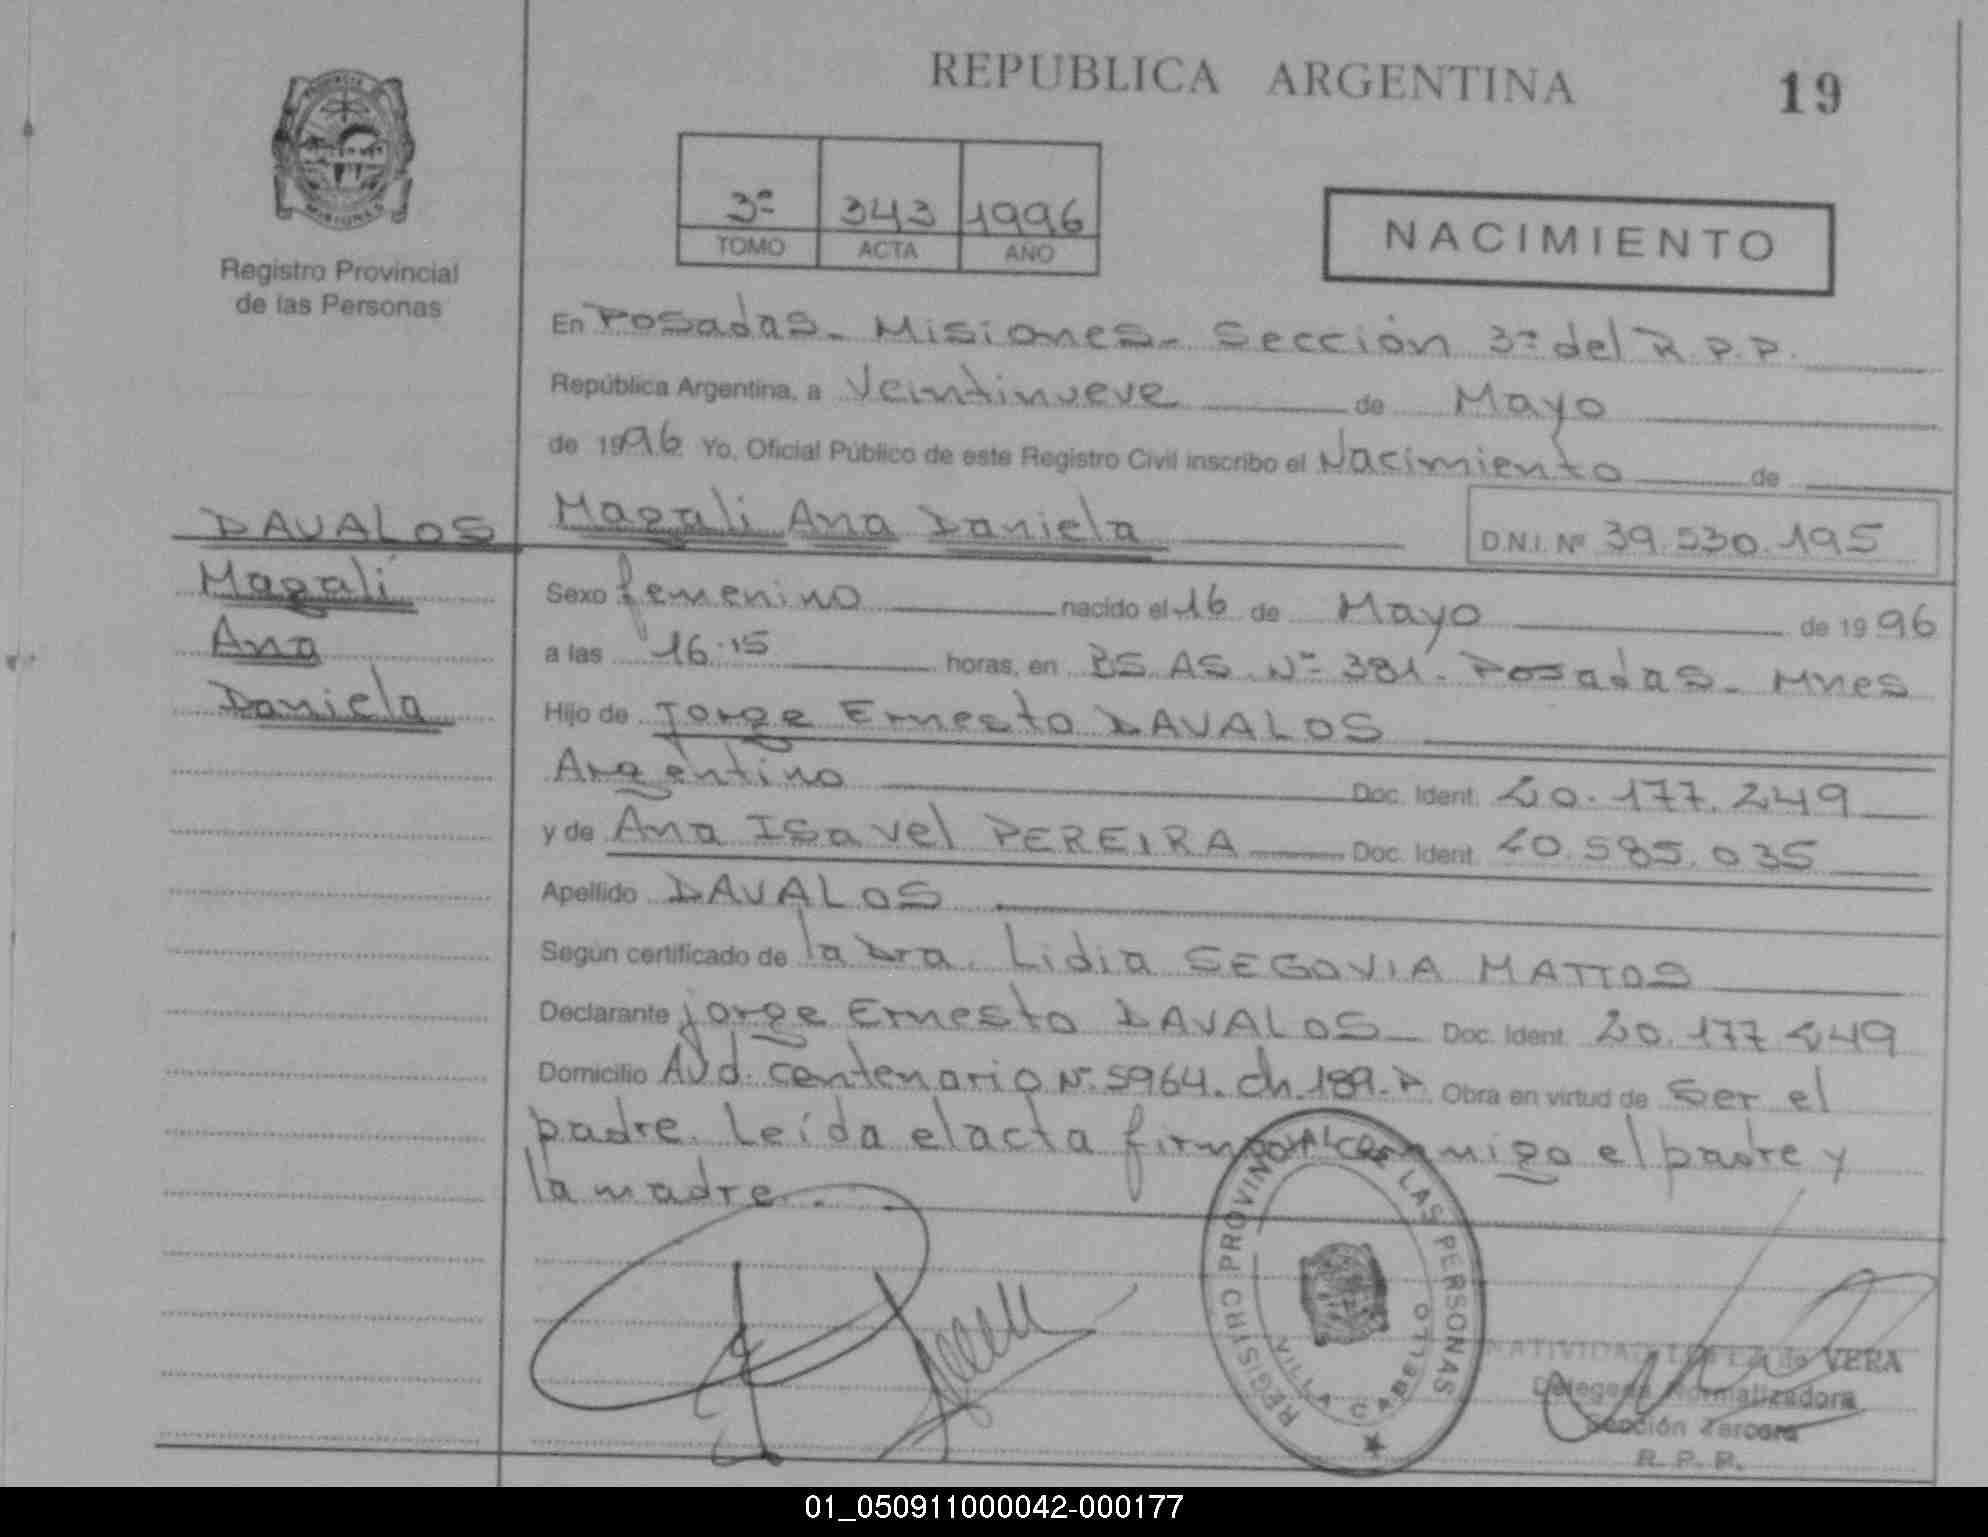 REPUBLICA ARGENTINA
19
3ª 343 1996
TOMO ACTA AÑO
NACIMIENTO
MISIONES
Registro Provincial
de las Personas
En Posadas - Misiones - Sección 3ª del R.P.P.
República Argentina, a Veintinueve de Mayo
de 1996 Yo, Oficial Público de este Registro Civil inscribo el Nacimiento de
DAVALOS Magali Ana Daniela D.N.I. Nº 39.530.195
Magali
Ana
Daniela
Sexo femenino nacido el 16 de Mayo de 1996
a las 16.15 horas, en BS. AS. Nº 381. Posadas - Mnes
Hijo de Jorge Ernesto DAVALOS
Argentino Doc. Ident. 20.177.249
y de Ana Isavel PEREIRA Doc. Ident. 20.585.035
Apellido DAVALOS
Según certificado de la Dra. Lidia SEGOVIA MATTOS
Declarante Jorge Ernesto DAVALOS Doc. Ident. 20.177.249
Domicilio Avd. Centenario Nº 5964. ch. 189. P. Obra en virtud de Ser el
padre. Leída el acta firman conmigo el padre y
la madre.
REGISTRO PROVINCIAL DE LAS PERSONAS
VILLA CABELLO
NATIVIDAD de VERA
Delegada Normalizadora
Sección Tercera
R. P. P.
01_050911000042-000177